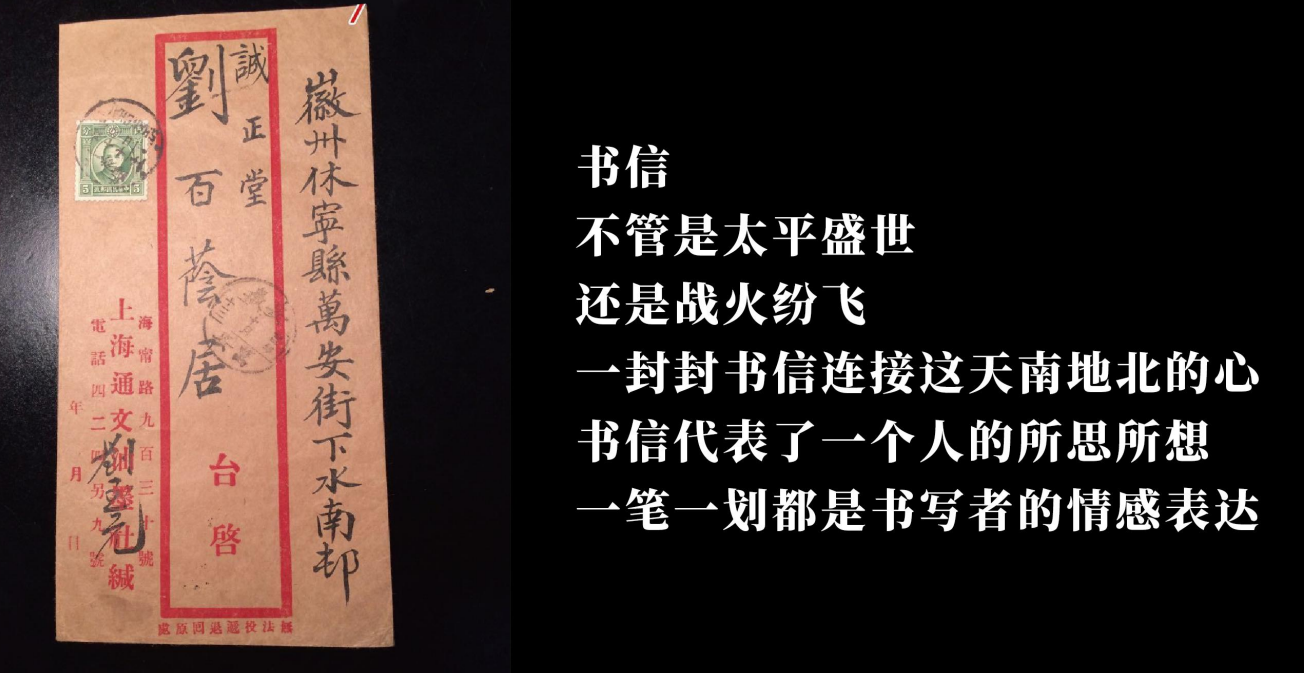 徽州休寧縣萬安街下水南邨
誠正堂
劉百蔭居
台啓
海甯路九百三十號
上海通文油墨社緘
電話四二四另九號
劉玉元
年 月 日
無法投遞退回原處
5 5
书信
不管是太平盛世
还是战火纷飞
一封封书信连接这天南地北的心
书信代表了一个人的所思所想
一笔一划都是书写者的情感表达